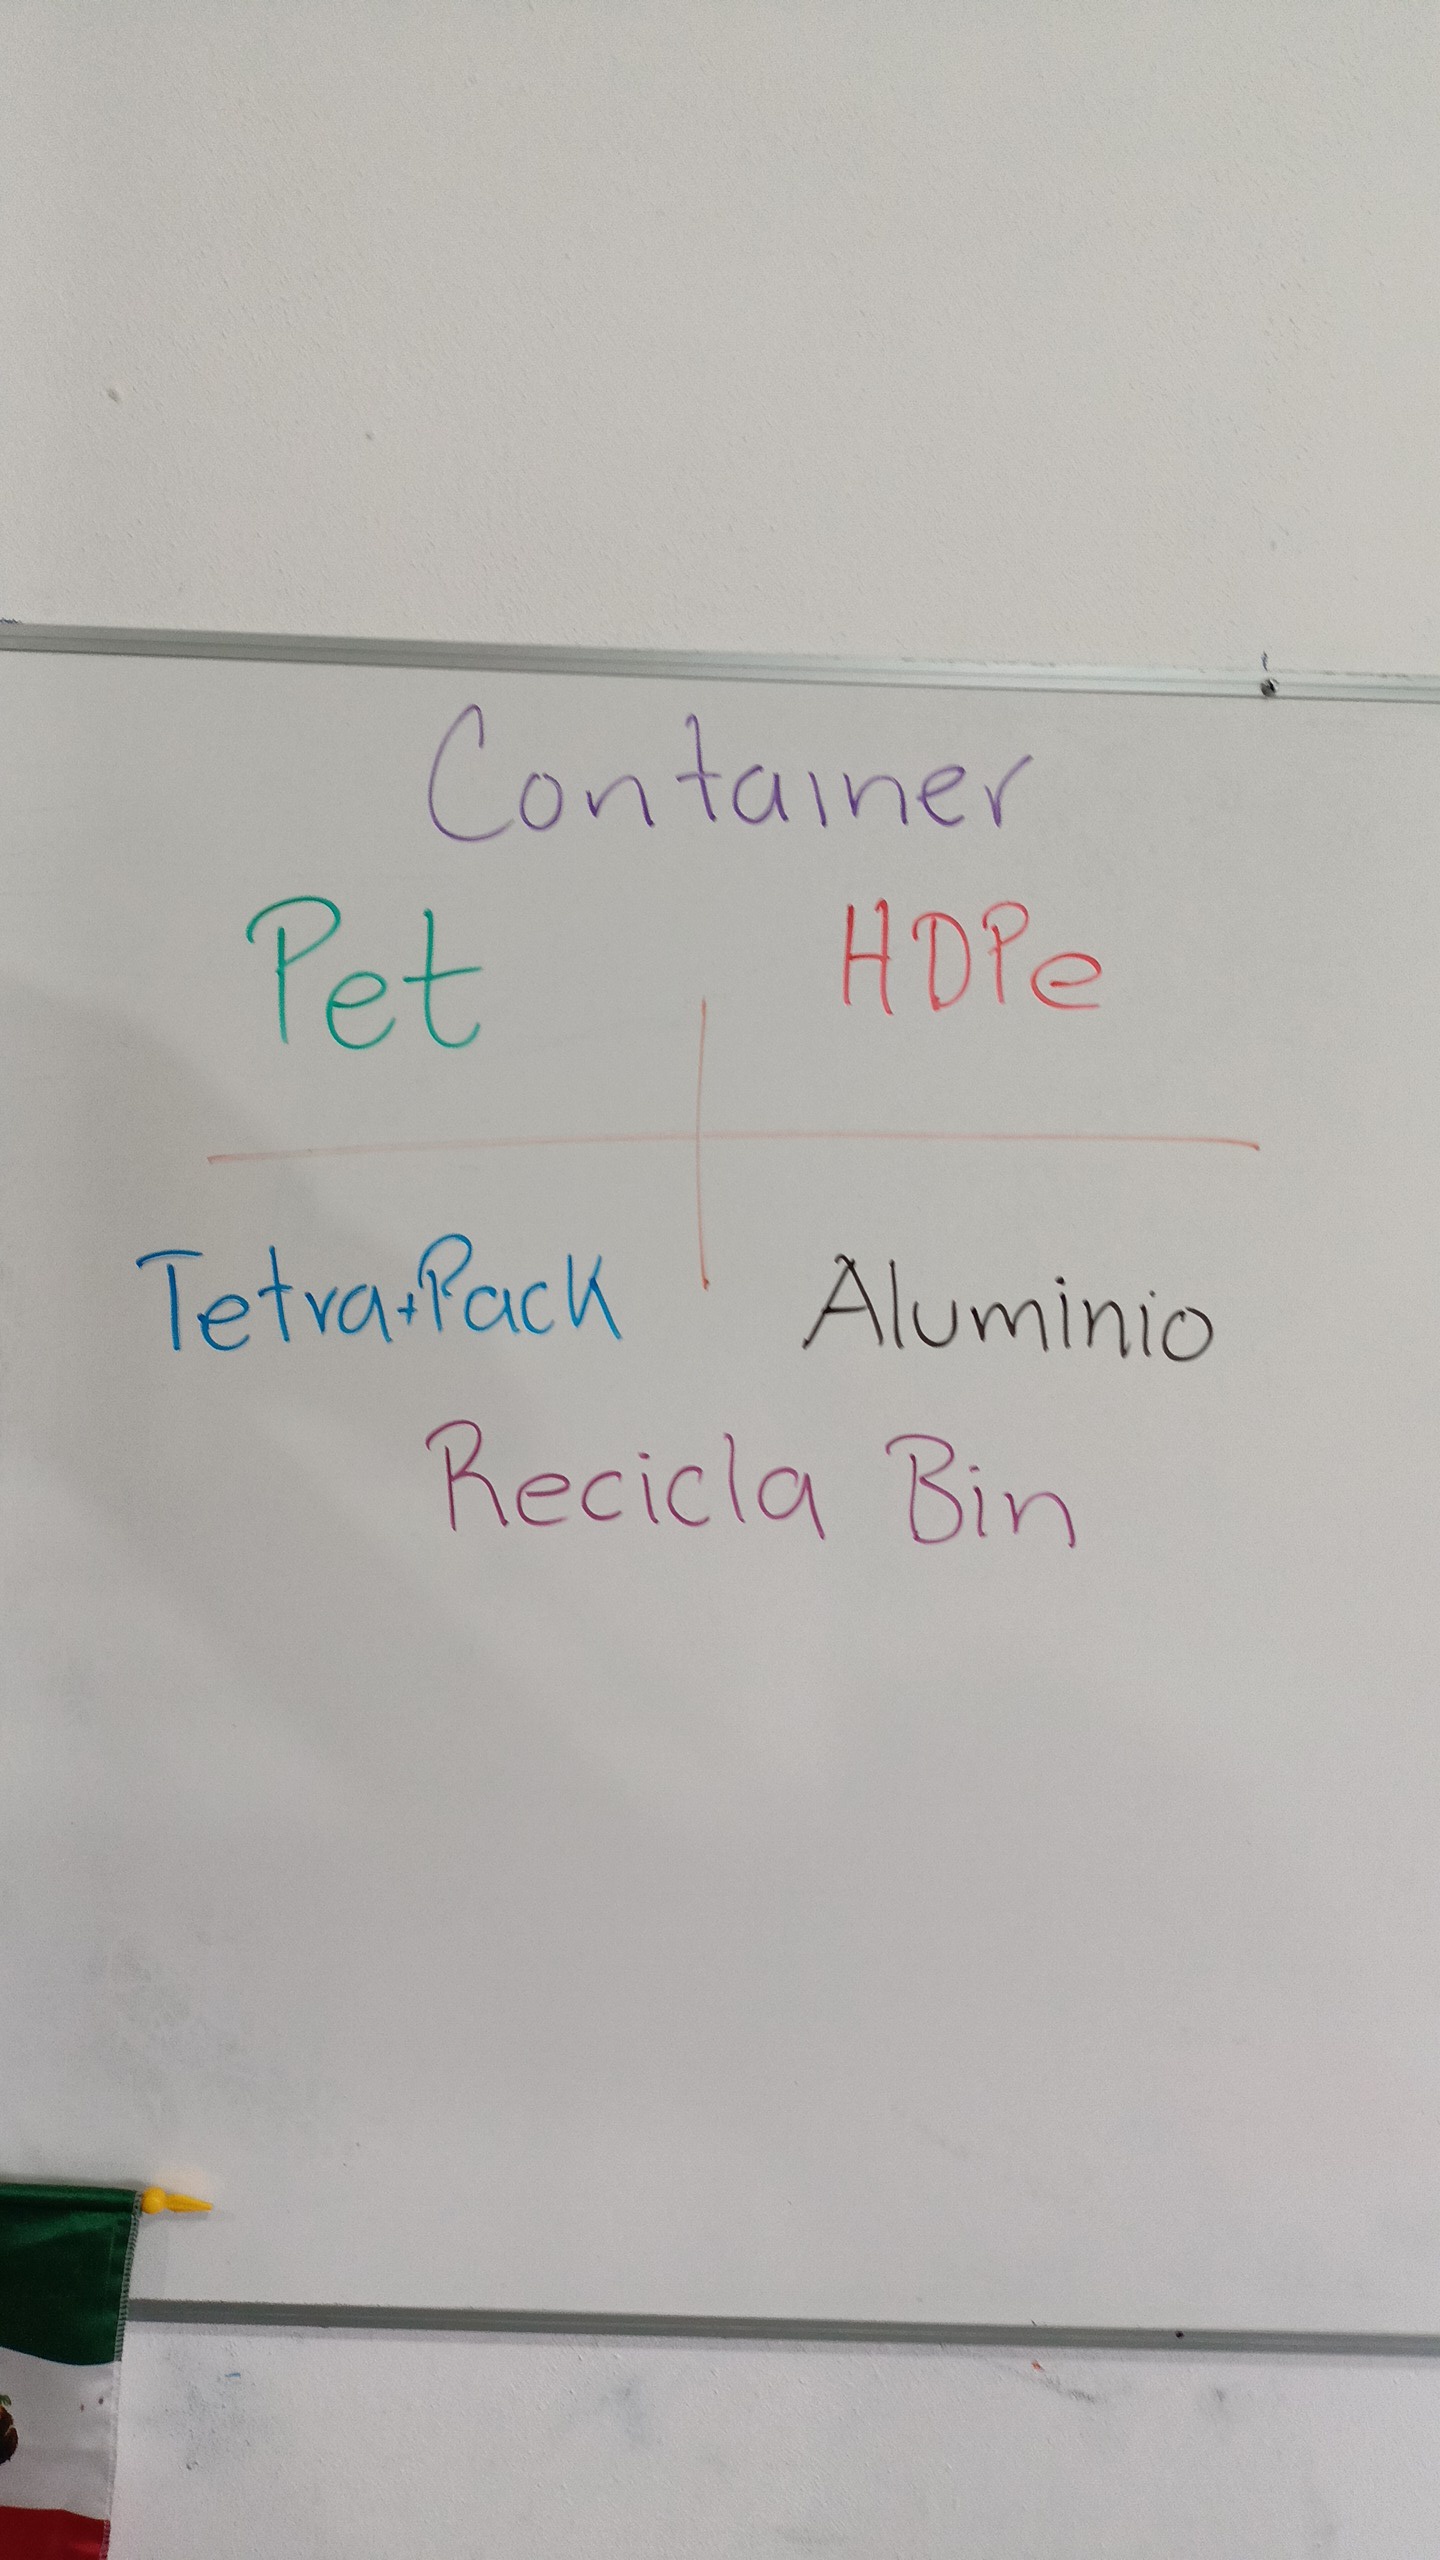 Container
Pet HDPe
Tetra+Pack Aluminio
Recicla Bin